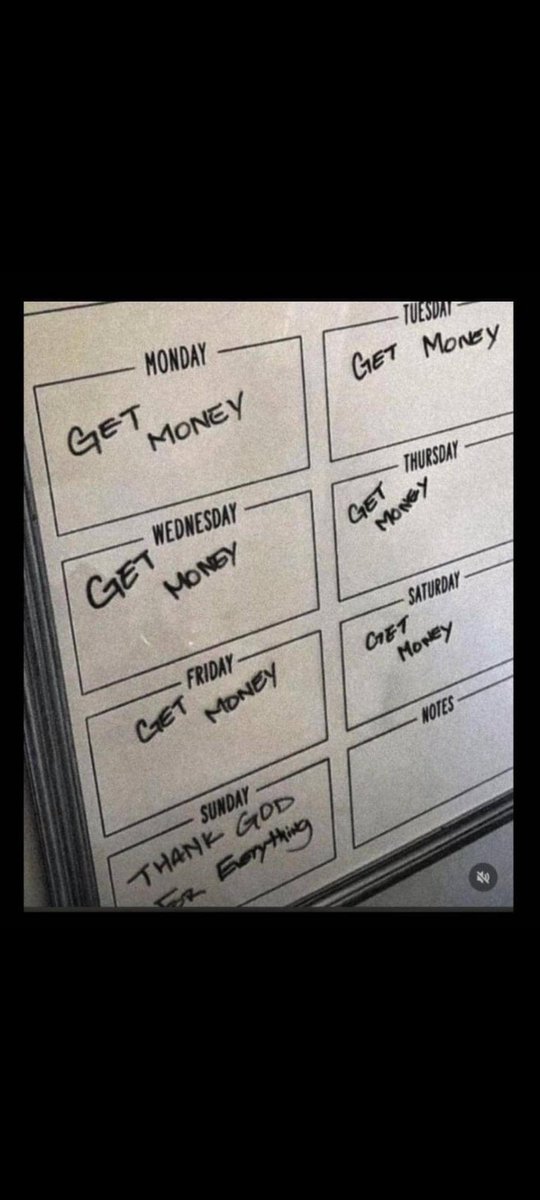 MONDAY
GET MONEY
TUESDAY
GET MONEY
WEDNESDAY
GET MONEY
THURSDAY
GET MONEY
FRIDAY
GET MONEY
SATURDAY
GET MONEY
SUNDAY
THANK GOD
FOR Everything
NOTES